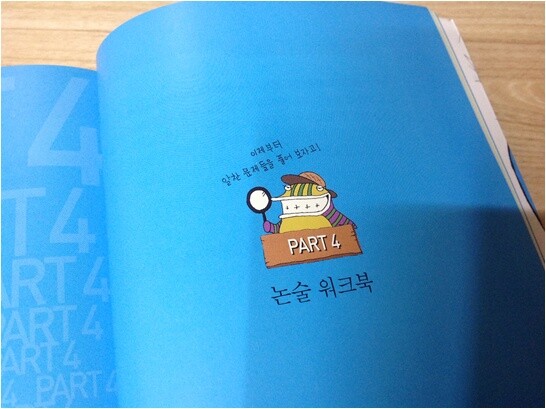 4
PART 4
PART 4
PART 4
PART 4
4 PART 4
이제부터
알찬 문제들을 풀어 보자고!
PART 4
논술 워크북